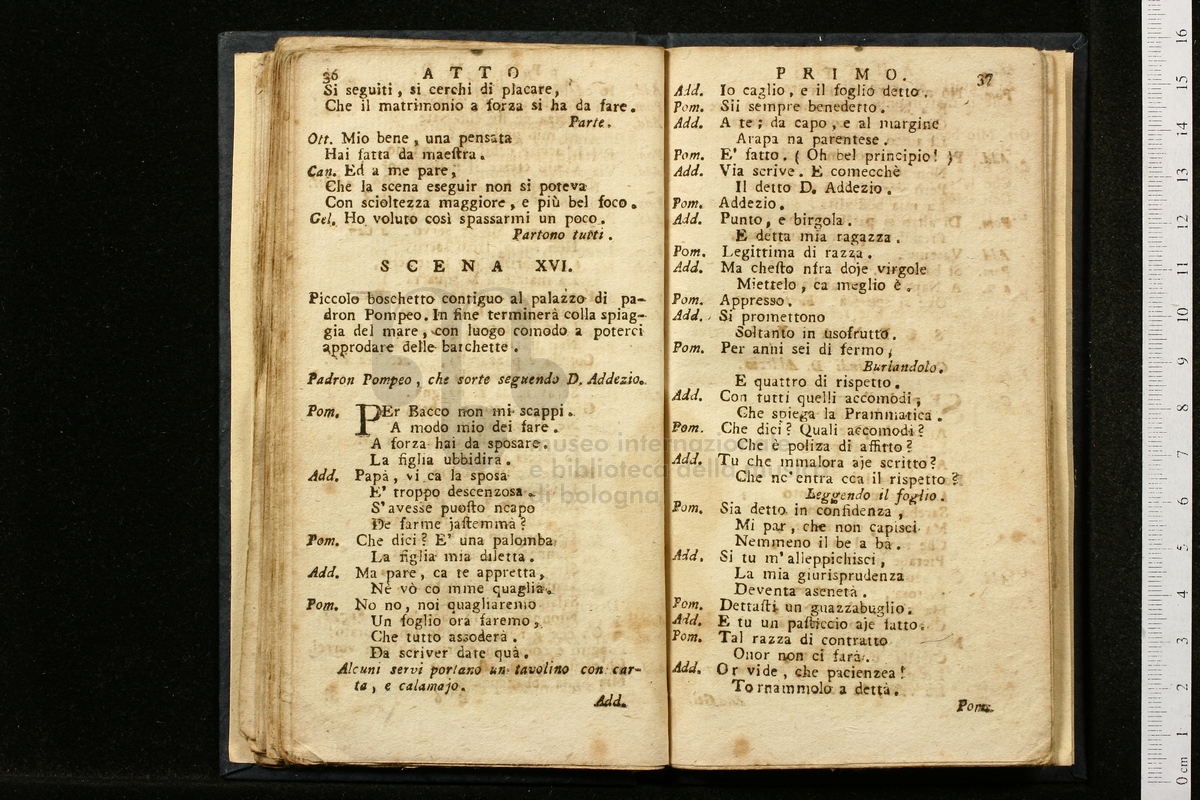 36 ATTO
Si seguiti, si cerchi di placare,
Che il matrimonio a forza si ha da fare.
Parte.
Ott. Mio bene, una pensata
Hai fatta da maestra.
Can. Ed a me pare,
Che la scena eseguir non si poteva
Con scioltezza maggiore, e più bel foco.
Gel. Ho voluto così spassarmi un poco.
Partono tutti.
SCENA XVI.
Piccolo boschetto contiguo al palazzo di pa-
dron Pompeo. In fine terminerà colla spiag-
gia del mare, con luogo comodo a poterci
approdare delle barchette.
Padron Pompeo, che sorte seguendo D. Addezio.
Pom. PEr Bacco non mi scappi.
A modo mio dei fare.
A forza hai da sposare.
La figlia ubbidirà.
Add. Papà, vi ca la sposa
E' troppo descenzosa.
S'avesse puosto ncapo
De farme jastemmà?
Pom. Che dici? E' una palomba
La figlia mia diletta.
Add. Ma pare, ca te appretta,
Nè vò co mme quaglia.
Pom. No no, noi quagliaremo
Un foglio ora faremo,
Che tutto assoderà.
Da scriver date quà.
Alcuni servi portano un tavolino con car-
ta, e calamajo.
Add.
PRIMO. 37
Add. Io caglio, e il foglio detto.
Pom. Sii sempre benedetto.
Add. A te; da capo, e al margine
Arapa na parentese.
Pom. E' fatto. (Oh bel principio!)
Add. Via scrive. E comecchè
Il detto D. Addezio.
Pom. Addezio.
Add. Punto, e birgola.
E detta mia ragazza.
Pom. Legittima di razza.
Add. Ma chesto nfra doje virgole
Miettelo, ca meglio è.
Pom. Appresso.
Add. Si promettono
Soltanto in usofrutto.
Pom. Per anni sei di fermo,
Burlandolo.
E quattro di rispetto.
Add. Con tutti quelli accomodi,
Che spiega la Prammatica.
Pom. Che dici? Quali accomodi?
Che è poliza di affitto?
Add. Tu che mmalora aje scritto?
Che nc'entra cca il rispetto?
Leggendo il foglio.
Pom. Sia detto in confidenza,
Mi par, che non capisci
Nemmeno il be a ba.
Add. Si tu m'alleppichisci,
La mia giurisprudenza
Deventa asenetà.
Pom. Dettasti un guazzabuglio.
Add. E tu un pasticcio aje fatto.
Pom. Tal razza di contratto
Onor non ci farà.
Add. Or vide, che pacienzea!
Tornammolo a dettà.
Pom.
museo internazionale
e biblioteca della musica
di bologna
0 cm 1 2 3 4 5 6 7 8 9 10 11 12 13 14 15 16